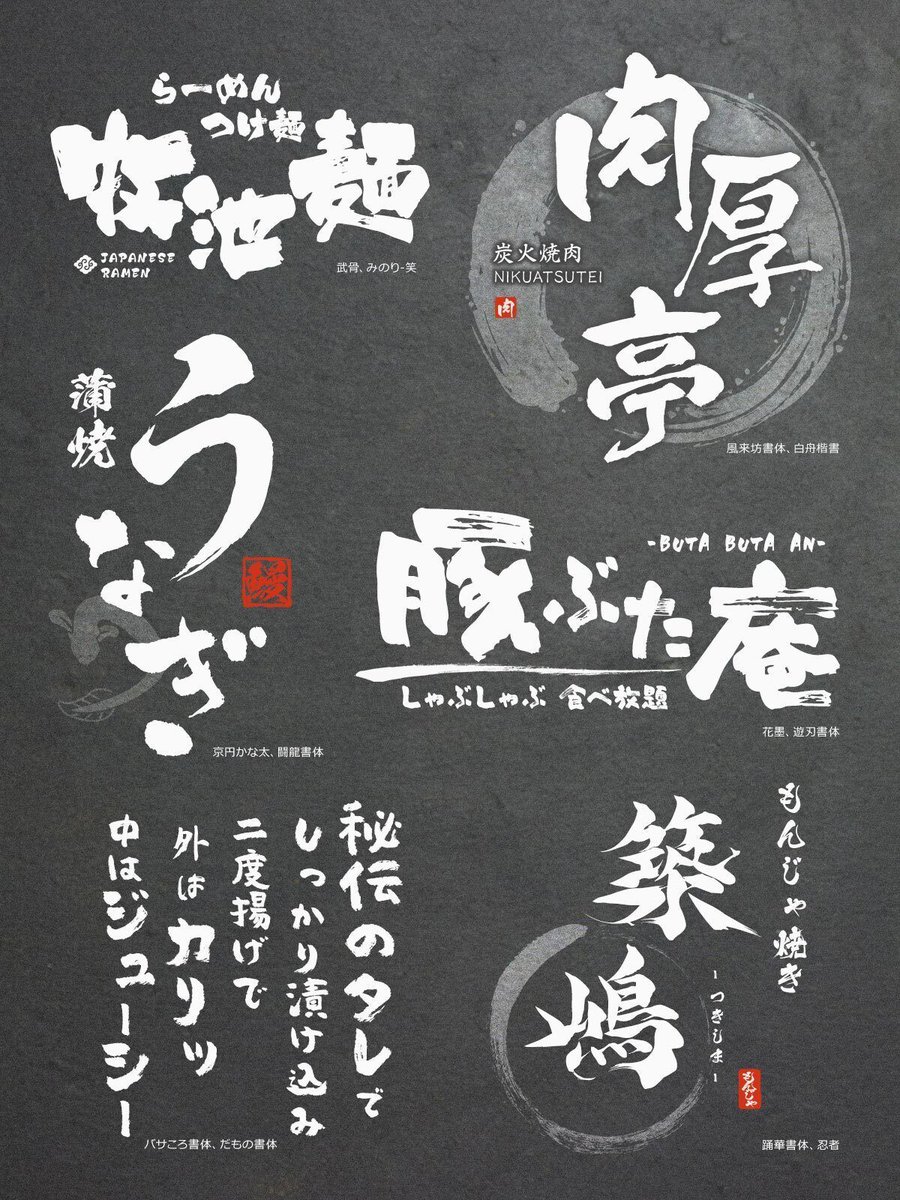 らーめん
つけ麺
池麺
JAPANESE
RAMEN
武骨、みのり-笑
肉厚亭
炭火焼肉
NIKUATSUTEI
肉
風来坊書体、白舟楷書
蒲焼
うなぎ
鰻
京円かな太、闘龍書体
-BUTA BUTA AN-
豚ぶた庵
しゃぶしゃぶ 食べ放題
花墨、遊刃書体
秘伝のタレで
しっかり漬け込み
二度揚げで
外はカリッ
中はジューシー
バサころ書体、だもの書体
もんじゃ焼き
築嶋
-つきしま-
もんじゃ
踊華書体、忍者